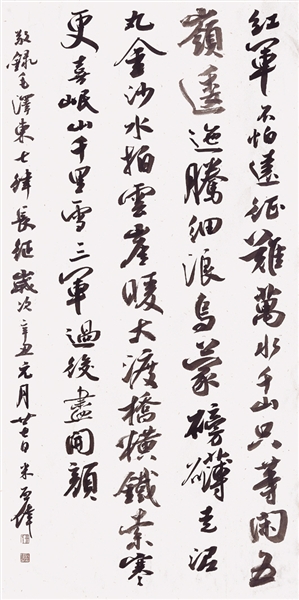 紅軍不怕遠征難萬水千山只等閑五
嶺逶迤騰細浪烏蒙磅礴走泥
丸金沙水拍雲崖暖大渡橋橫鐵索寒
更喜岷山千里雪三軍過後盡開顏
敬錄毛澤東七律長征歲次辛丑元月廿七日米